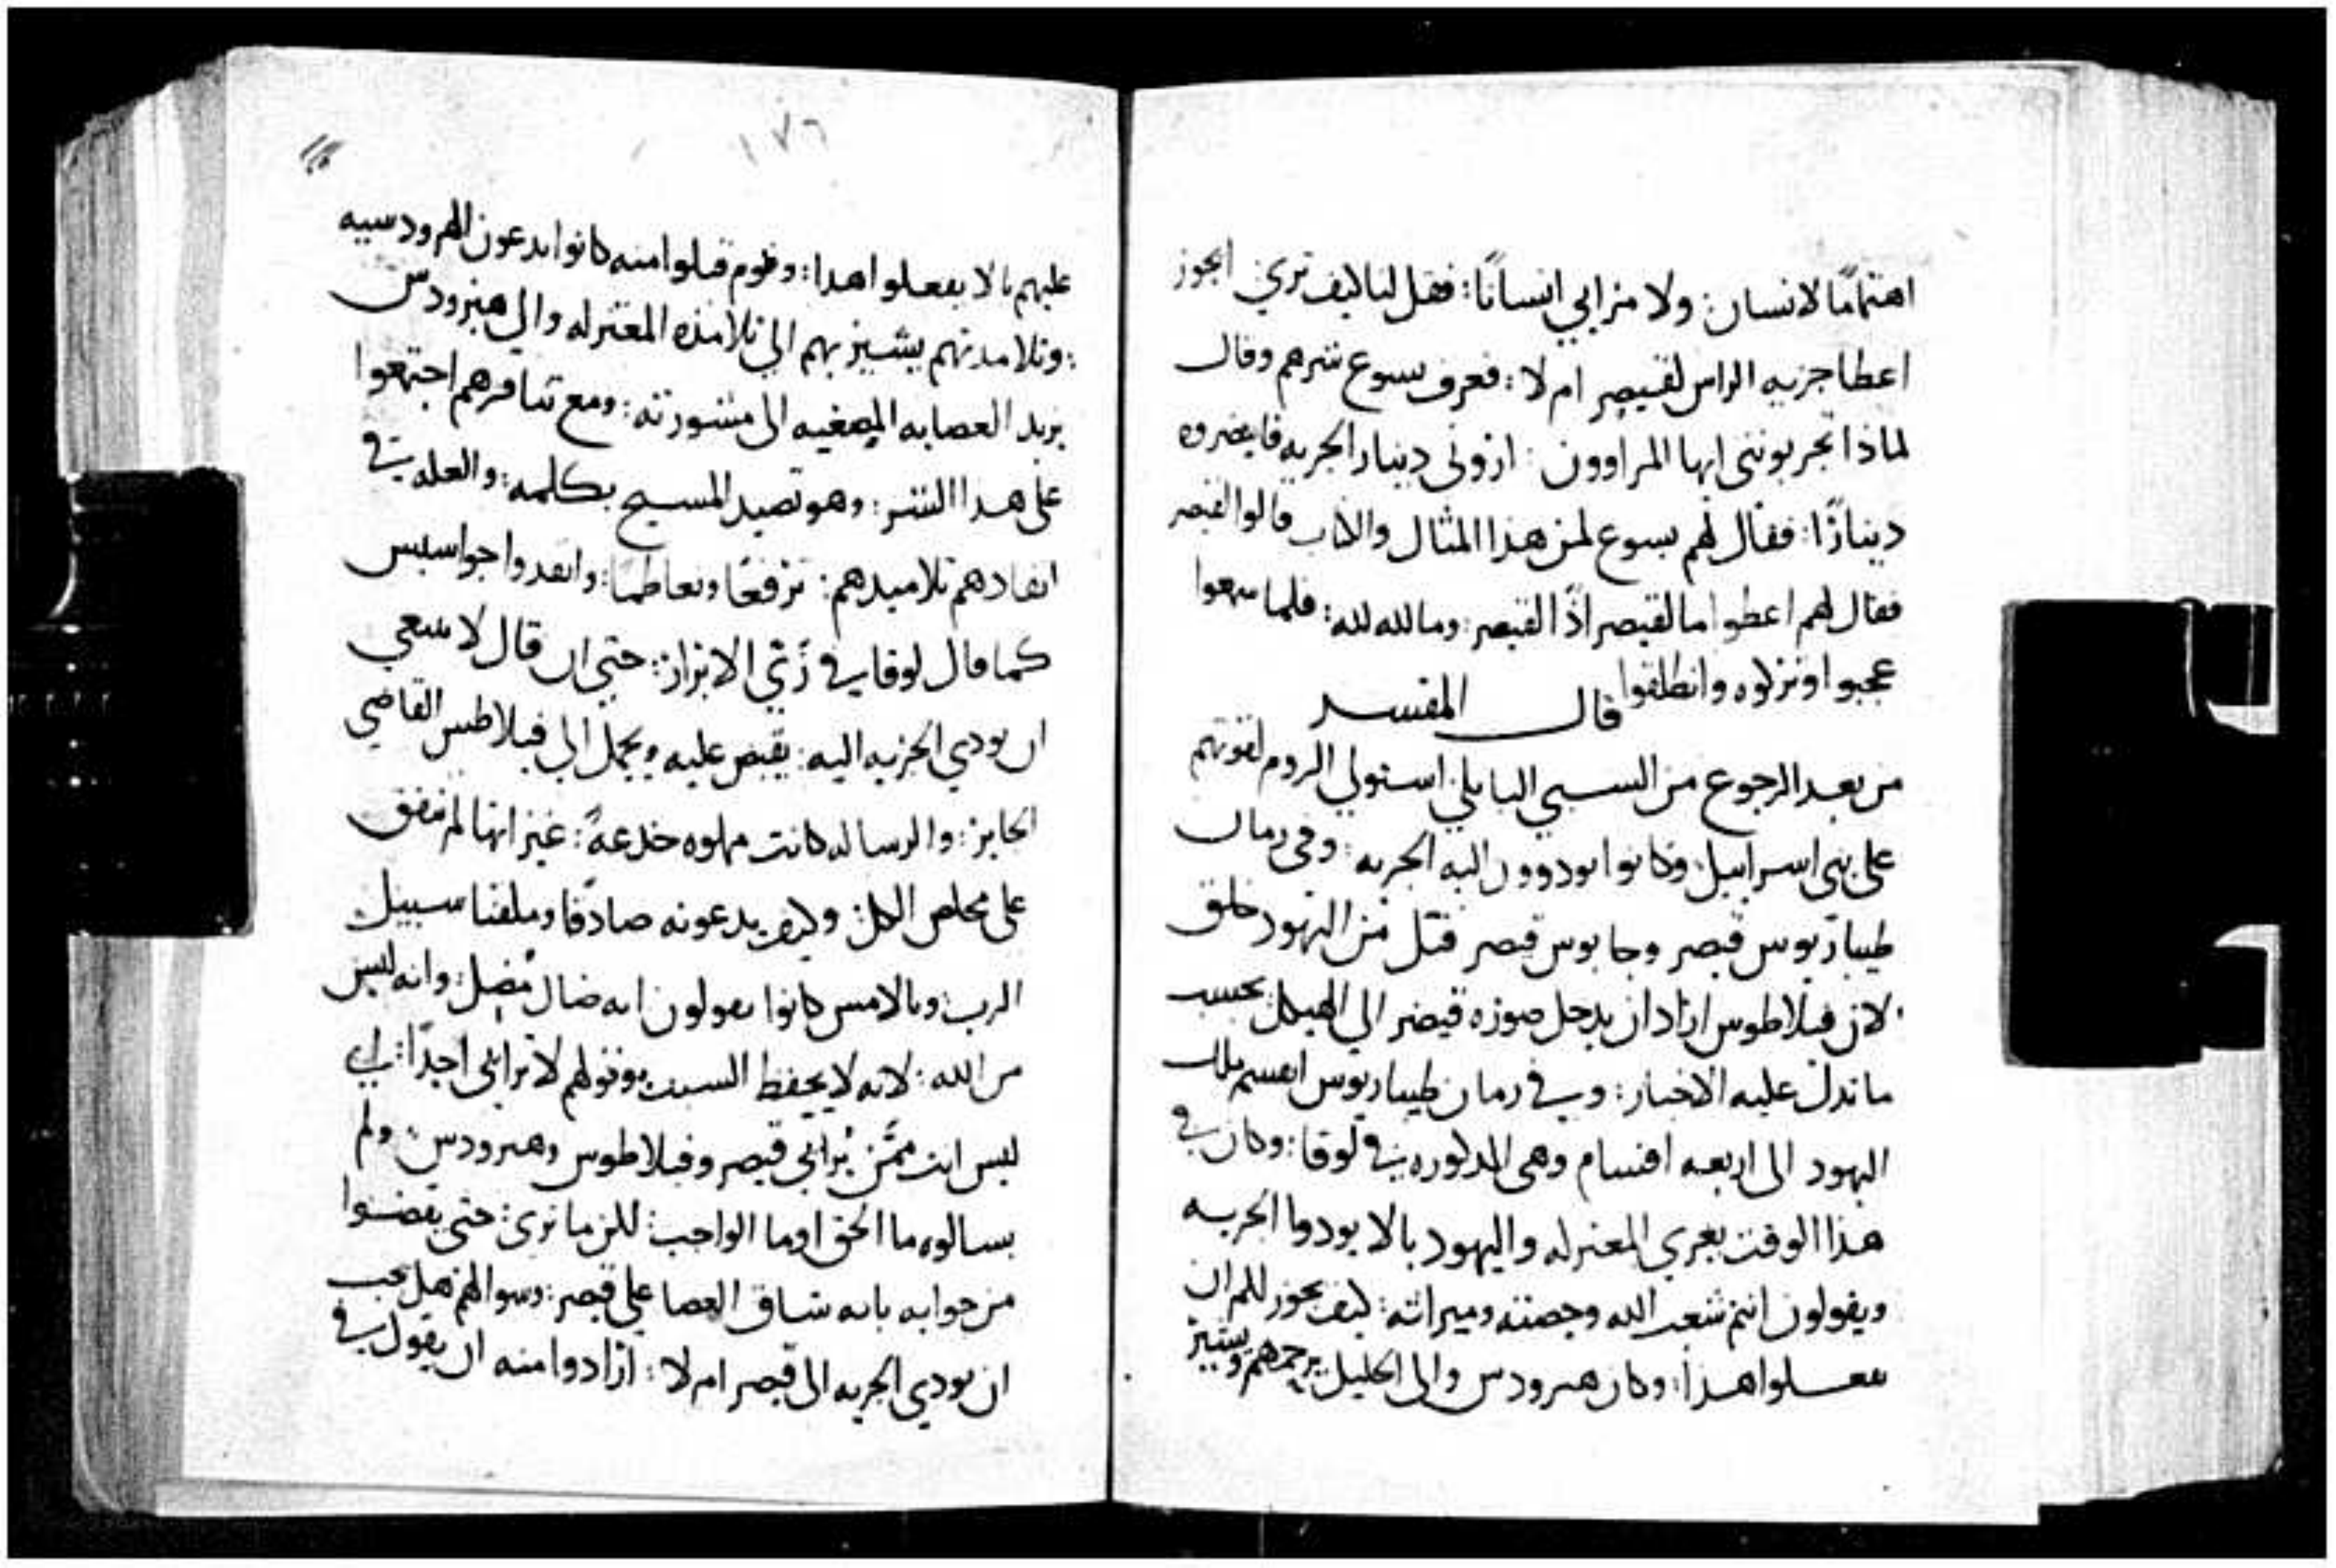 اهتمامًا لانسان: ولا مرايي انسانًا: فقل لنا كيف تري ايجوز
اعطا جزيه الراس لقيصر ام لا: فعرف يسوع شرهم وقال
لماذا تجربونني ايها المراوون: اروني دينار الجزيه فاحضروه
دينارًا: فقال لهم يسوع لمن هذا المثال والكتاب قالوا لقيصر
فقال لهم اعطوا ما لقيصر اذًا لقيصر: وما لله لله: فلما سمعوا
عجبوا وتركوه وانطلقوا
قال المفسر
من بعد الرجوع من السبي البابلي استولي الروم لقوتهم
على بني اسراييل وكانوا يودوون اليه الجزيه: وفي زمان
طيباريوس قيصر وجايوس قيصر قتل من اليهود خلق
لان فيلاطوس اراد ان يدخل صوره قيصر الي الهيكل بحسب
ما تدل عليه الاخبار: وفي زمان طيباريوس انقسم ملك
اليهود الى اربعه اقسام وهى المذكوره في لوقا: وكان في
هذا الوقت يغري المعتزله واليهود بالا يودوا الجزيه
ويقولون انتم شعب الله وحصته وميراثه: كيف يجوز لكم ان
تفعلوا هذا: وكان هيرودس والى الجليل يرحمهم ويشير
١٧٦
عليهم بالا يفعلوا هذا: وقوم قبلوا منه كانوا يدعون الهرودسيه
: وتلامذتهم يشير بهم الي تلامذه المعتزله والي هيرودس
يريد العصابه المصغيه الى مشورته: ومع تنافرهم اجتمعوا
على هذا الشر: وهو تصيد المسيح بكلمه: والعله في
انفادهم تلاميدهم: ترفعًا وتعاظمًا: وانفدوا جواسيس
كما قال لوقا في زي الابرار: حتي ان قال لا ينبغي
ان يودي الجزيه اليه: يقبض عليه ويحمل الي فيلاطس القاضي
الجاير: والرساله كانت مملوه خدعةً: غير انها لم تتفق
على مخلص الكل: وكيف يدعونه صادقًا وملقنا سبيل
الرب: وبالامس كانوا يقولون انه ضال مُضل: وانه ليس
من الله: لانه لا يحفظ السبت: وقولهم لا ترايي احدًا: اي
ليس انت ممن يُرايي قيصر وفيلاطوس وهيرودس: ولم
يسالوه ما الحق او ما الواجب: لكن ما تري: حتي يقضوا
من جوابه بانه شاق العصا علي قيصر: وسوالهم هل يجب
ان يودي الجزيه الى قيصر ام لا: ارادوا منه ان يقول في